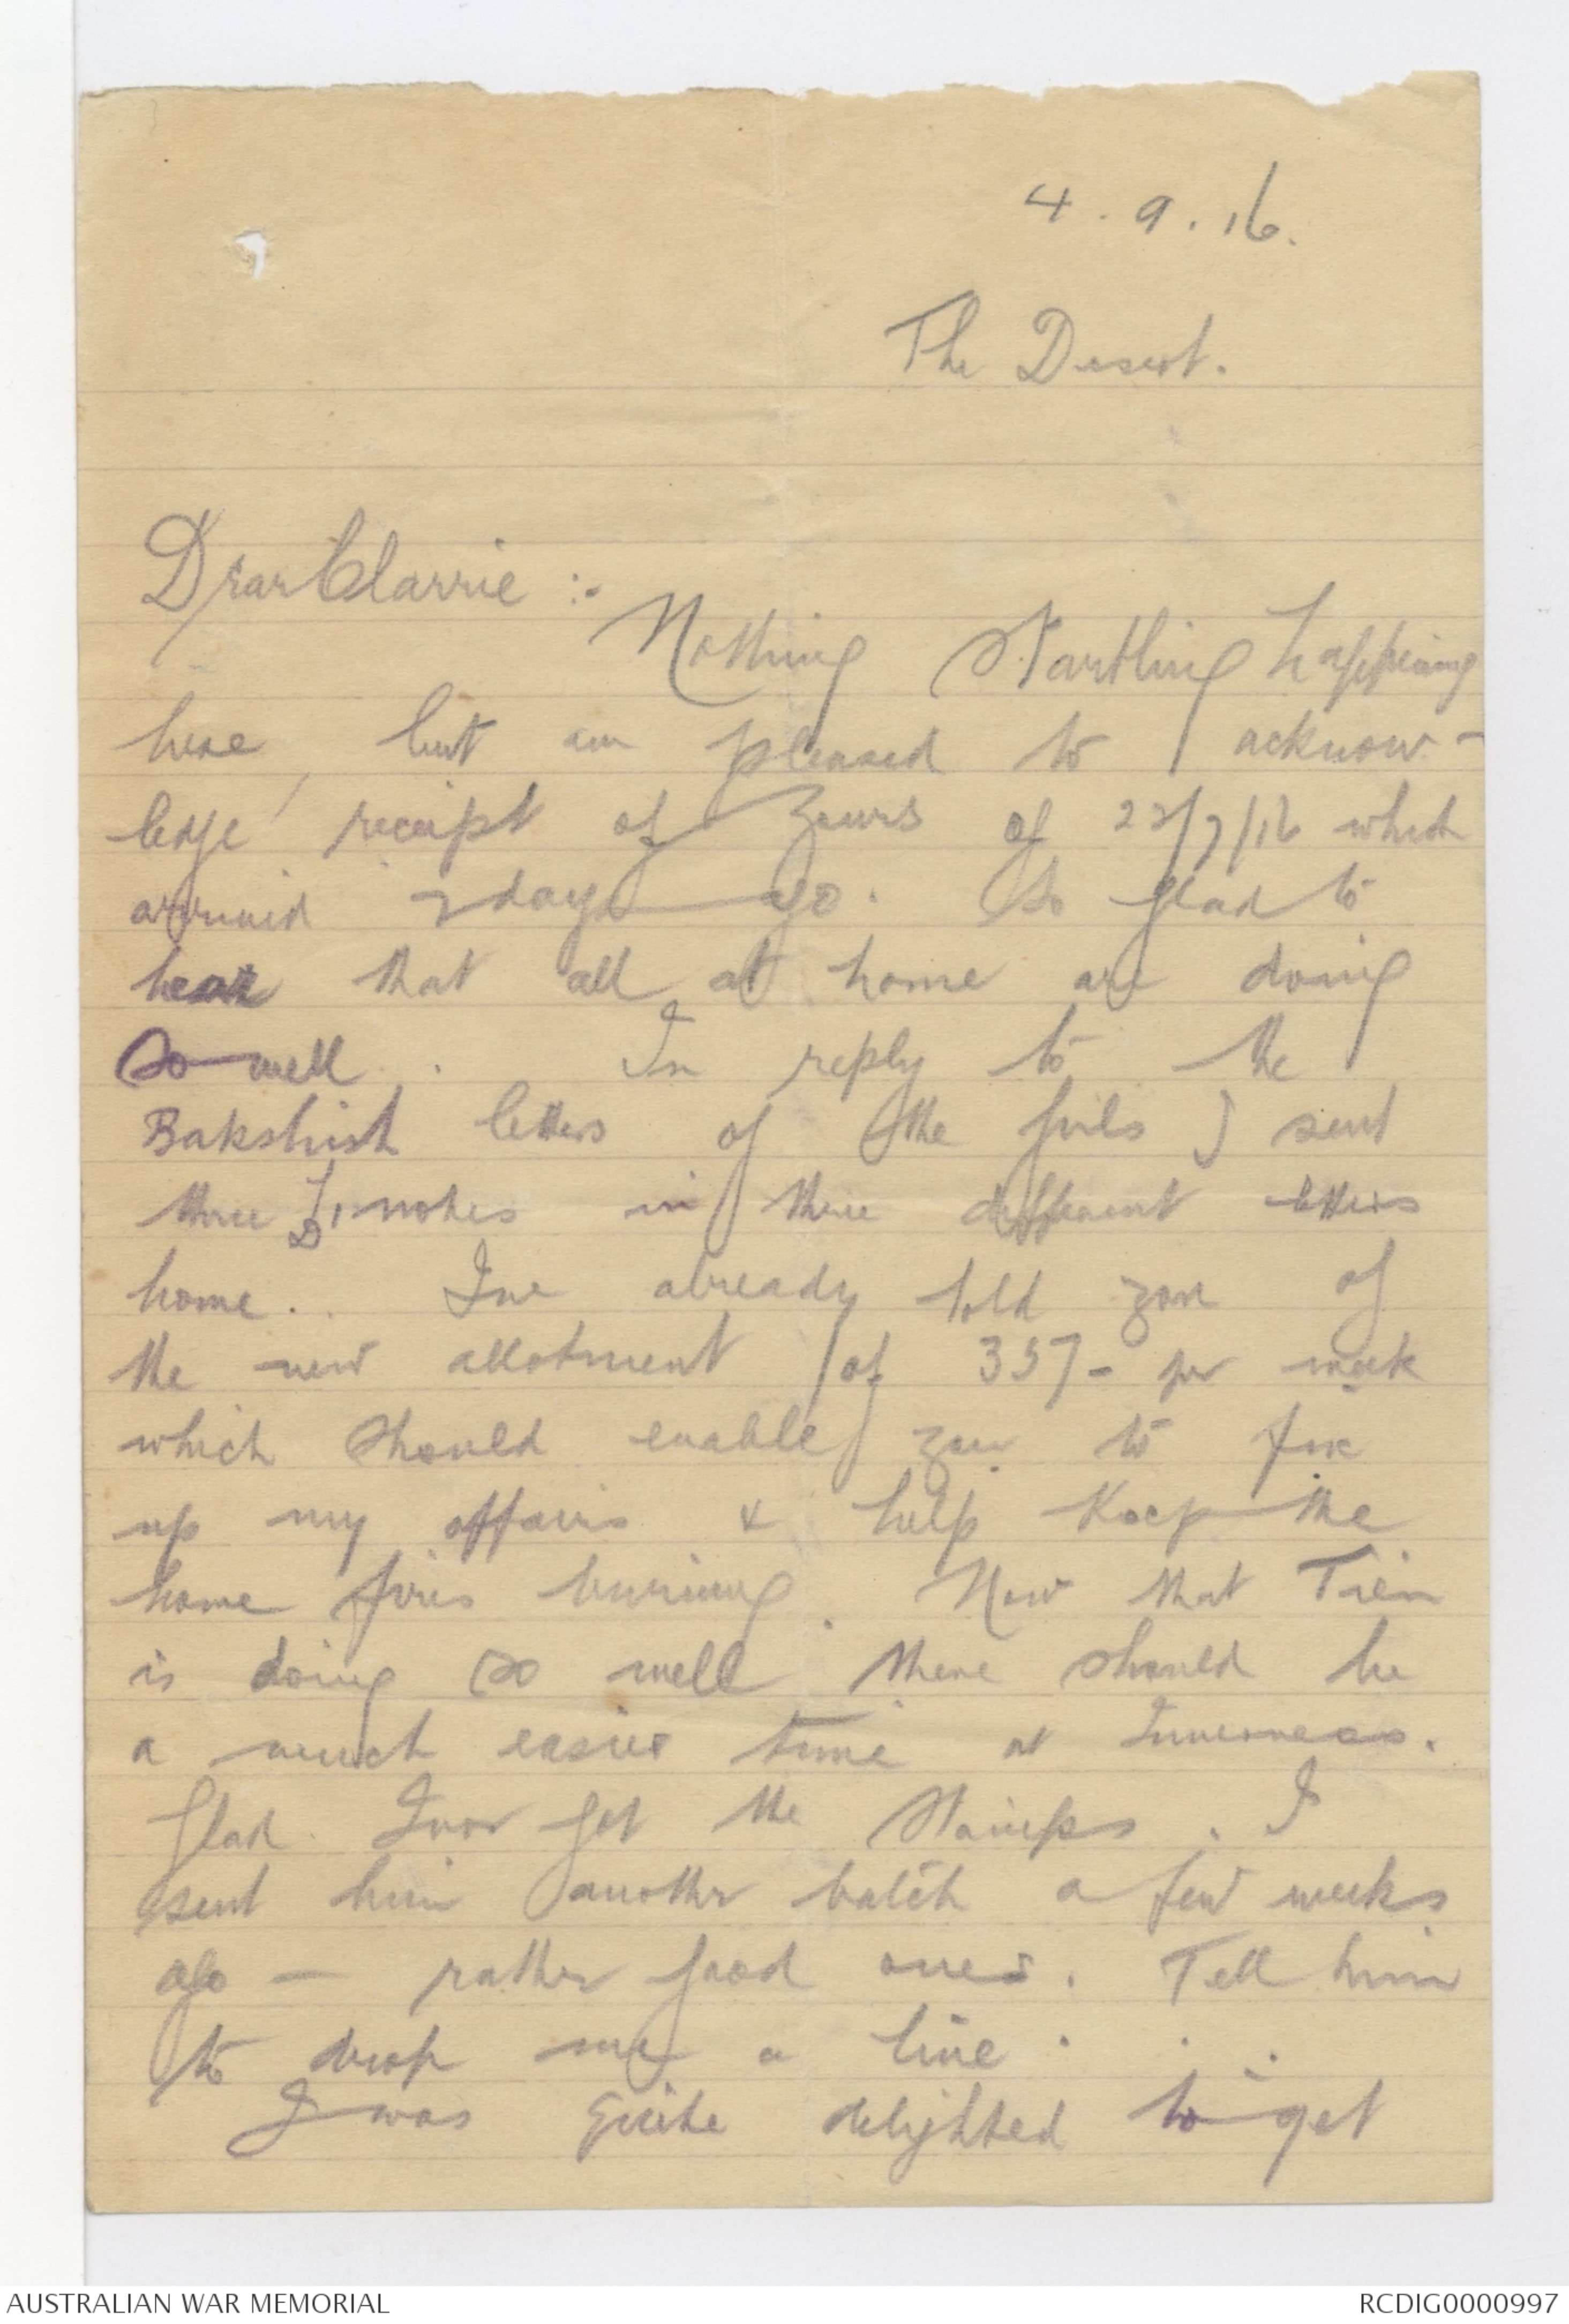 4.9.16.
The Desert.
Dear Clarrie :-
Nothing Startling happening
here, but am pleased to acknow-
ledge receipt of yours of 23/7/16 which
arrived 2 days ago. So glad to
hear that all at home are doing
so well. In reply to the
Bakshish letters of the girls I sent
three £1 notes in three different letters
home. I've already told you of
the new allotment of 35/- per week
which should enable you to fix
up my affairs & help keep the
home fires burning. Now that
is doing so well there should be
a much easier time at Inverness.
Glad Ivor got the Stamps. I
sent him another batch a few weeks
ago - rather good ones. Tell him
to drop me a line.
I was quite delighted to get
AUSTRALIAN WAR MEMORIAL
RCDIG0000997